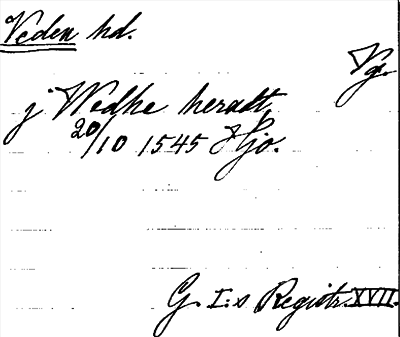 Veden hd.
Vg.
j Wedhe heradt,
20/10 1545 Hjo.
G. I.s Registr. XVII.